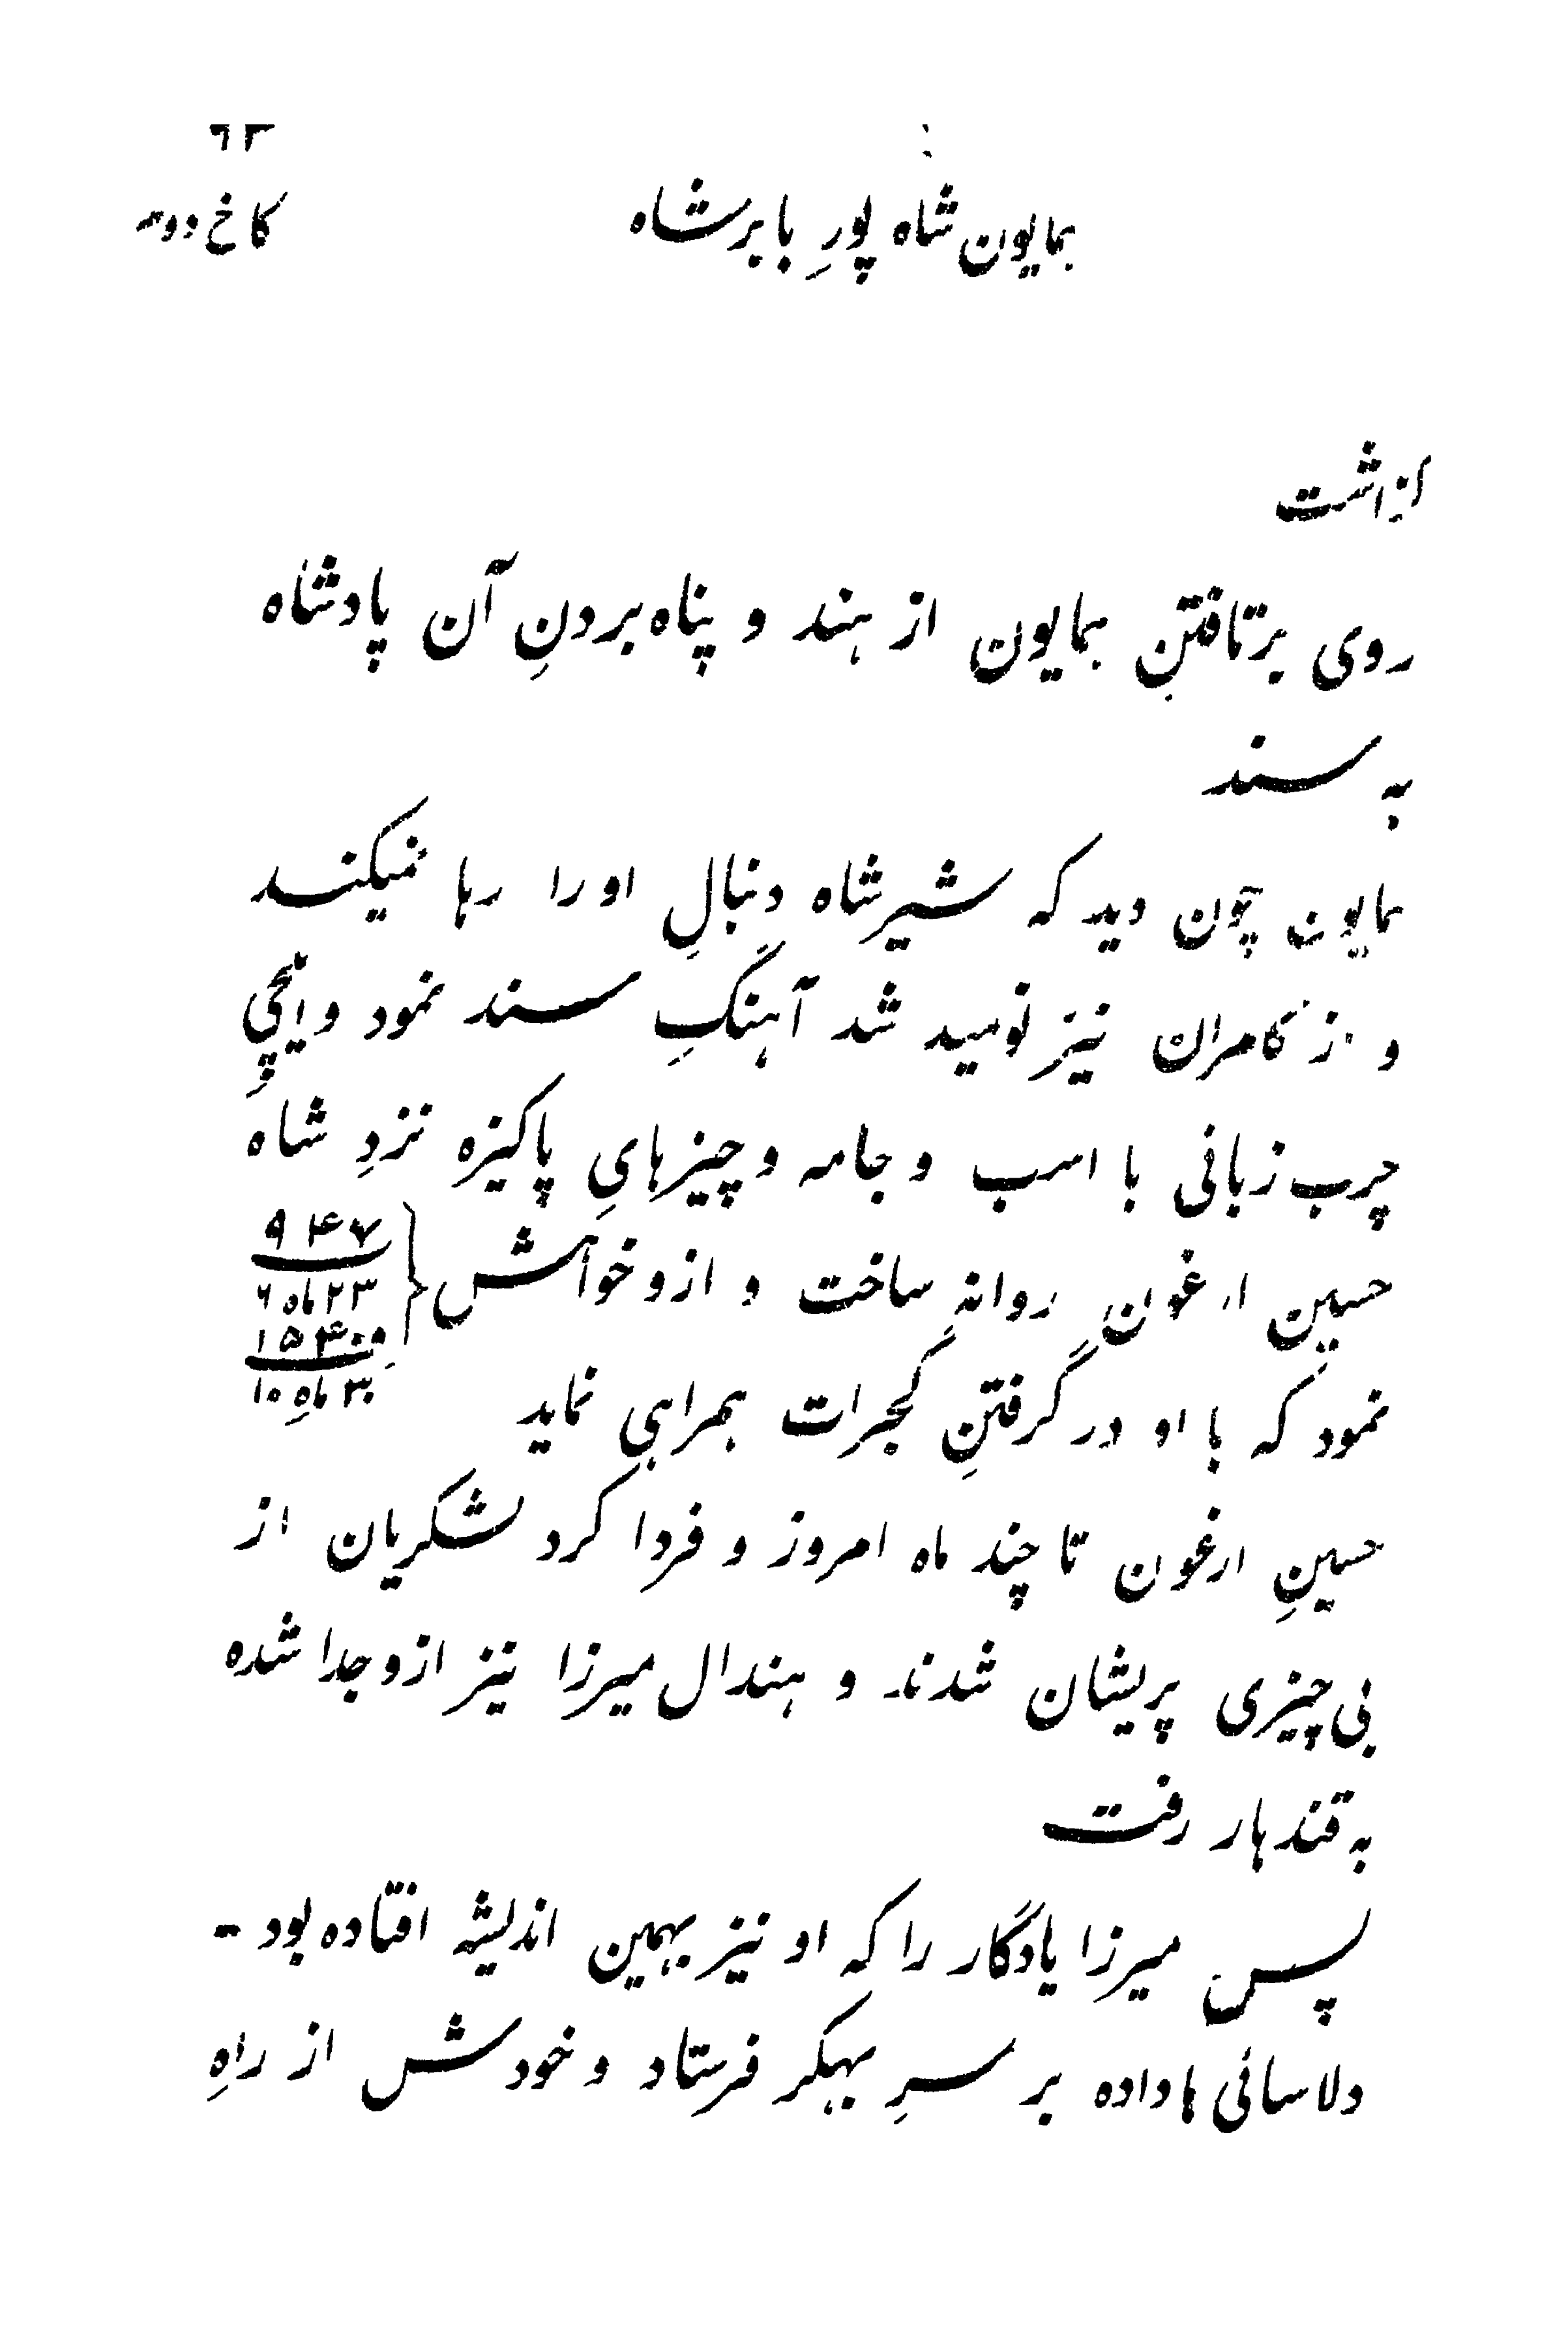 ۶۳
همایون شاه پورِ بابر شاه
کاخ دوم
گذاشت
روی برتافتنِ همایون از هند و پناه بردنِ آن پادشاه
به سند
همایون چون دید که شیر شاه دنبالِ او را رها نمیکند
و از کامران نیز نومید شد آهنگِ سند نمود و ایلچیِ
چرب زبانی با اسب و جامه و چیزهایِ پاکیزه نزدِ شاه
حسینِ ارغون روانه ساخت و ازو خواهش
۹۴۷
۲۳ ماه ۶
۱۵۴۰
۳۰ ماهِ ۱۰
نمود که با او در گرفتنِ گجرات همراهی نماید
حسینِ ارغون تا چند ماه امروز و فردا کرد لشکریان از
بی چیزی پریشان شدند و هندال میرزا نیز ازو جدا شده
به قندهار رفت
پس میرزا یادگار را که او نیز بهمین اندیشه افتاده بود -
دلاسائی ها داده بر سرِ بهکر فرستاد و خودش از راهِ